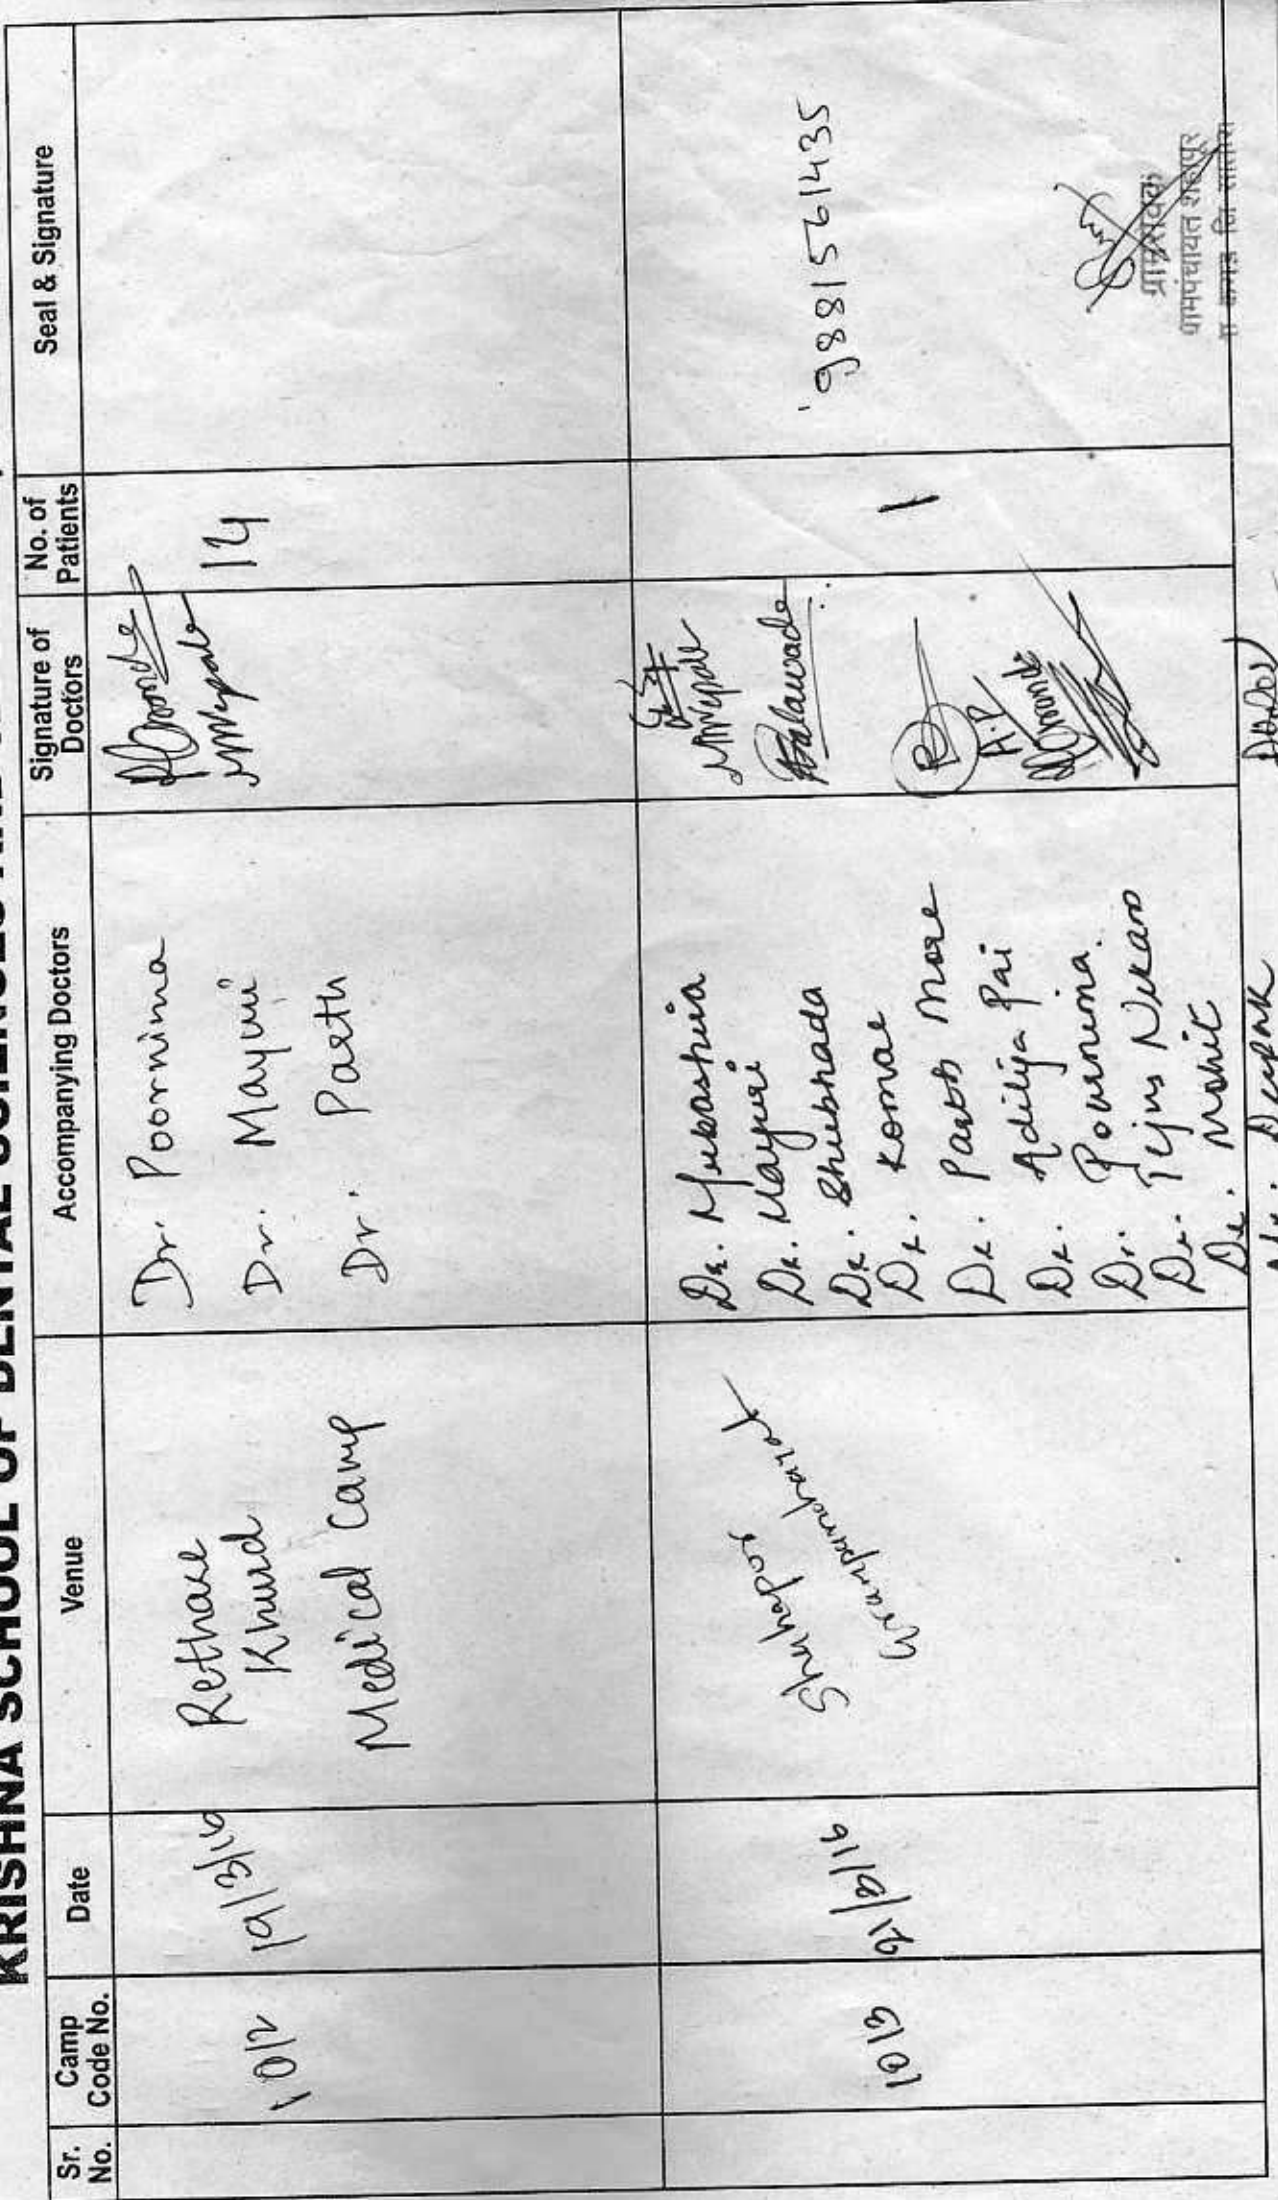 KRISHNA SCHOOL OF DENTAL SCIENCES
Sr. No.
Camp Code No.
Date
Venue
Accompanying Doctors
Signature of Doctors
No. of Patients
Seal & Signature
1012
19/3/16
Rethare
Khurd
Medical Camp
Dr. Poornima
Dr. Mayuri
Dr. Parth
14
1013
21/3/16
Shahapur
Grampanchayat
Dr. Mubashira
Dr. Mayuri
Dr. Shubhada
Dr. Komal
Dr. Parth More
Dr. Aditya Pai
Dr. Pournima.
Dr. Tejus Nikam
Dr. Mohit
Dr. Deepak
Balawade
A.P
1
9881561435
ग्रामसेवक
ग्रामपंचायत शहापूर